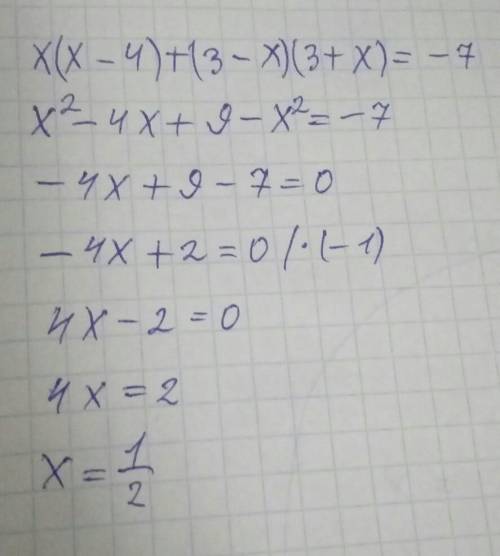 x(x-4)+(3-x)(3+x)=-7
x²-4x+9-x²=-7
-4x+9-7=0
-4x+2=0 /·(-1)
4x-2=0
4x=2
x=1/2